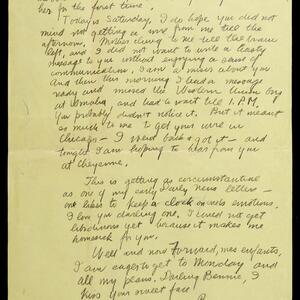 her for the first time.
Today is Saturday, I do hope you did not
mind not getting a wire from me till the
afternoon. clung to me till the train
left, and I did not want to write a hasty
message to you without enjoying a sense of
communication. I am a miser about you.
And then this morning I had a message
ready and missed the Western Union boy
at Omaha, and had to wait till 1. P.M.
You probably didn't notice it. But it meant
so much to me to get your wire in
Chicago – I went back & got it – and
tonight I am hoping to hear from you
at Cheyenne.
This is getting as circumstantial
as one of my early daily news letters –
one likes to keep a clock on one's emotions.
I love you darling one, I could not get
because it makes me
homesick for you.
Well and now Forward, mes enfants,
I am eager to get to Monday and
all my plans, Darling Bennie, I
kiss your sweet face!